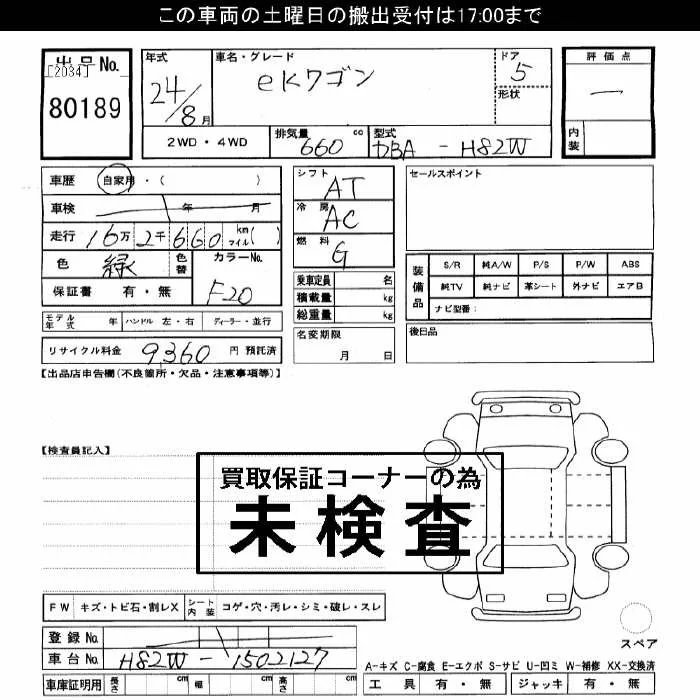 この車両の土曜日の搬出受付は17:00まで
出品No.
[2034]
80189
年式
24/8月
車名・グレード
eKワゴン
ドア
5
形状
評価点
—
内装
2WD・4WD
排気量
660 cc
型式
DBA - H82W
車歴 自家用・( )
車検 年 月
走行 16万2千660 km マイル( )
色 緑 色替 カラーNo.
F20
保証書 有・無
モデル年式 年 ハンドル 左・右 ディーラー・並行
リサイクル料金 9,360 円 預託済
シフト
AT
冷房
AC
燃料
G
乗車定員 名
積載量 kg
総重量 kg
名変期限
月 日
セールスポイント
装備品
S/R 純A/W P/S P/W ABS
純TV 純ナビ 革シート 外ナビ エアB
ナビ型番:
後日品
【出品店申告欄(不良箇所・欠品・注意事項等)】
【検査員記入】
買取保証コーナーの為
未検査
FW キズ・トビ石・割レX シート内装 コゲ・穴・汚レ・シミ・破レ・スレ
登録No.
車台No. H82W-1502127
車庫証明用 長さ cm 幅 cm 高さ cm
スペア
A-キズ C-腐食 E-エクボ S-サビ U-凹ミ W-補修 XX-交換済
工具 有・無 ジャッキ 有・無